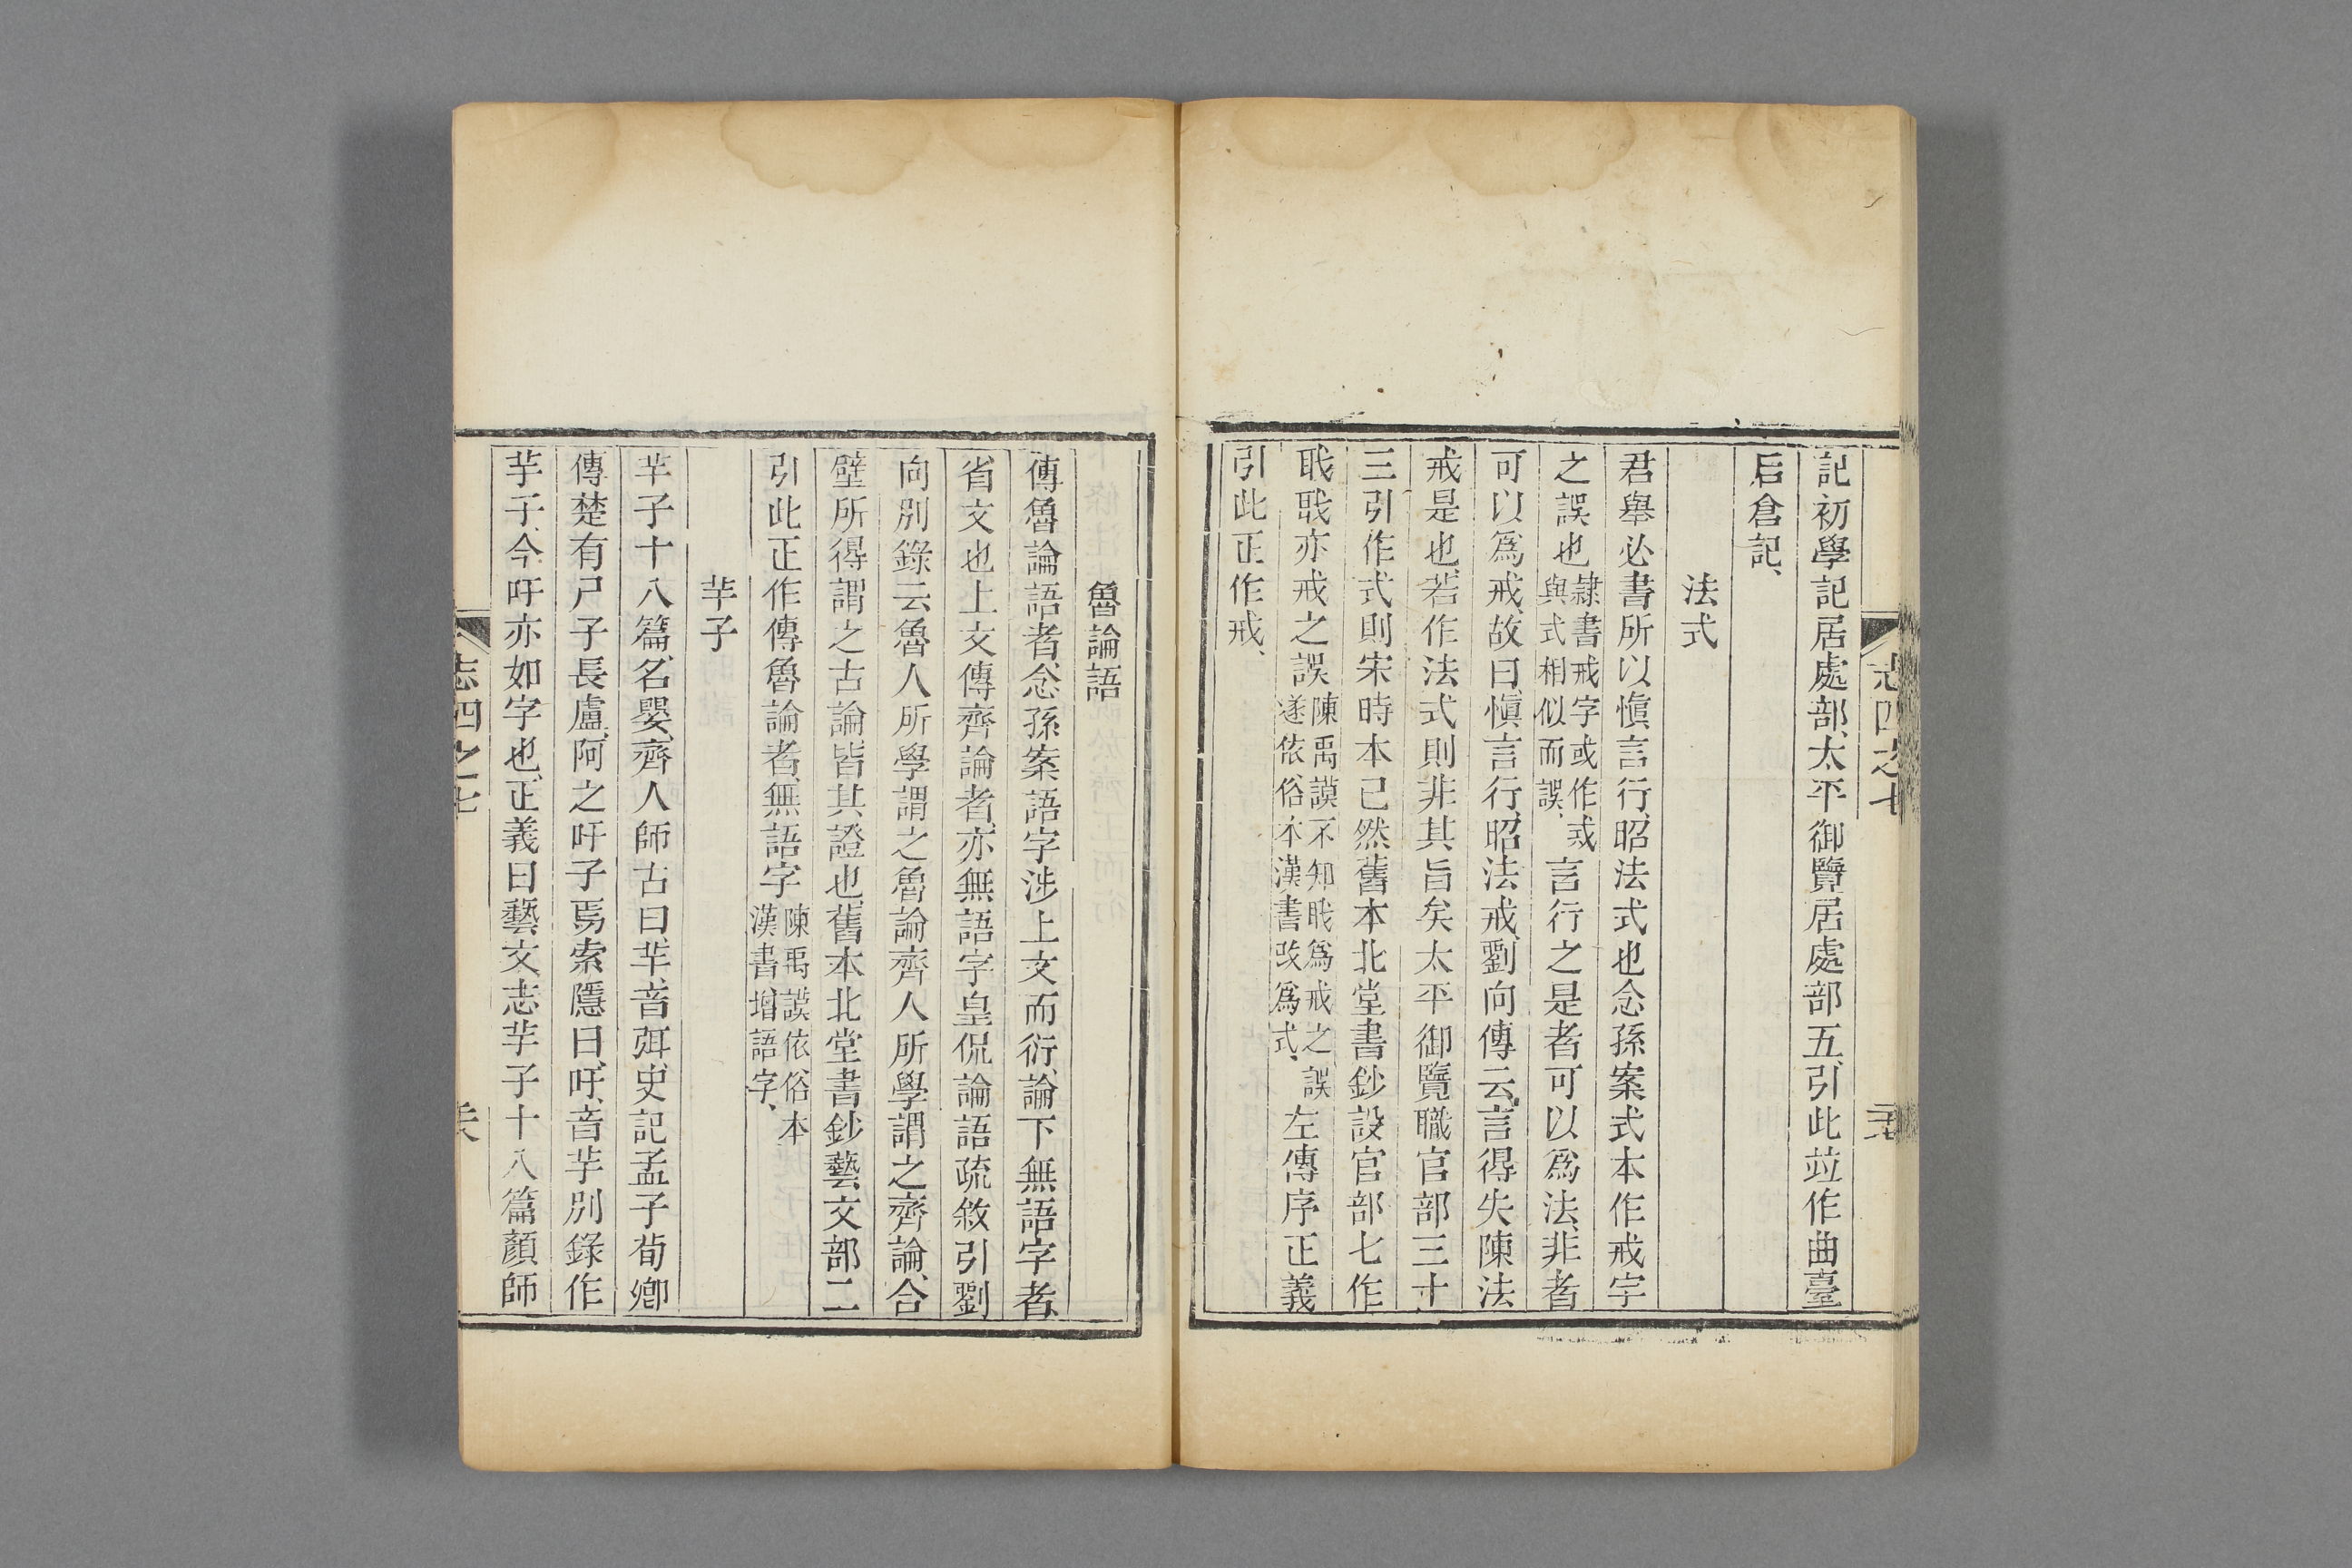 記初學記居處部、太平御覽居處部五、引此竝作曲臺
后倉記、
法式
君舉必書所以愼言行、昭法式也念孫案式本作戒字
之誤也隷書戒字或作戓與式相似而誤、言行之是者可以爲法、非者
可以爲戒、故曰愼言行、昭法戒、劉向傳云、言得失陳法
戒是也、若作法式則非其旨矣太平御覽職官部三十
三引作式則宋時本已然舊本北堂書鈔設官部七作
戓亦戒之誤陳禹謨不知爲戒之誤遂依俗本漢書改爲式、左傳序正義
引此正作戒、
志四之七
魯論語
傳魯論語者、念孫案語字涉上文而衍、論下無語字者、
省文也上文傳齊論者、亦無語字皇侃論語疏敘引劉
向別錄云魯人所學謂之魯論齊人所學謂之齊論、合
壁所得謂之古論、皆其證也、舊本北堂書鈔藝文部二
引此正作傳魯論者、無語字陳禹謨依俗本漢書、增語字、
芊子
芊子十八篇、名嬰、齊人師古曰、芊、音弭、史記孟子荀卿
傳楚有尸子長盧、阿之吁子焉索隱曰、吁、音芊別錄作
芊子、今吁亦如字也、正義曰藝文志芊子十八篇顏師
志四之七